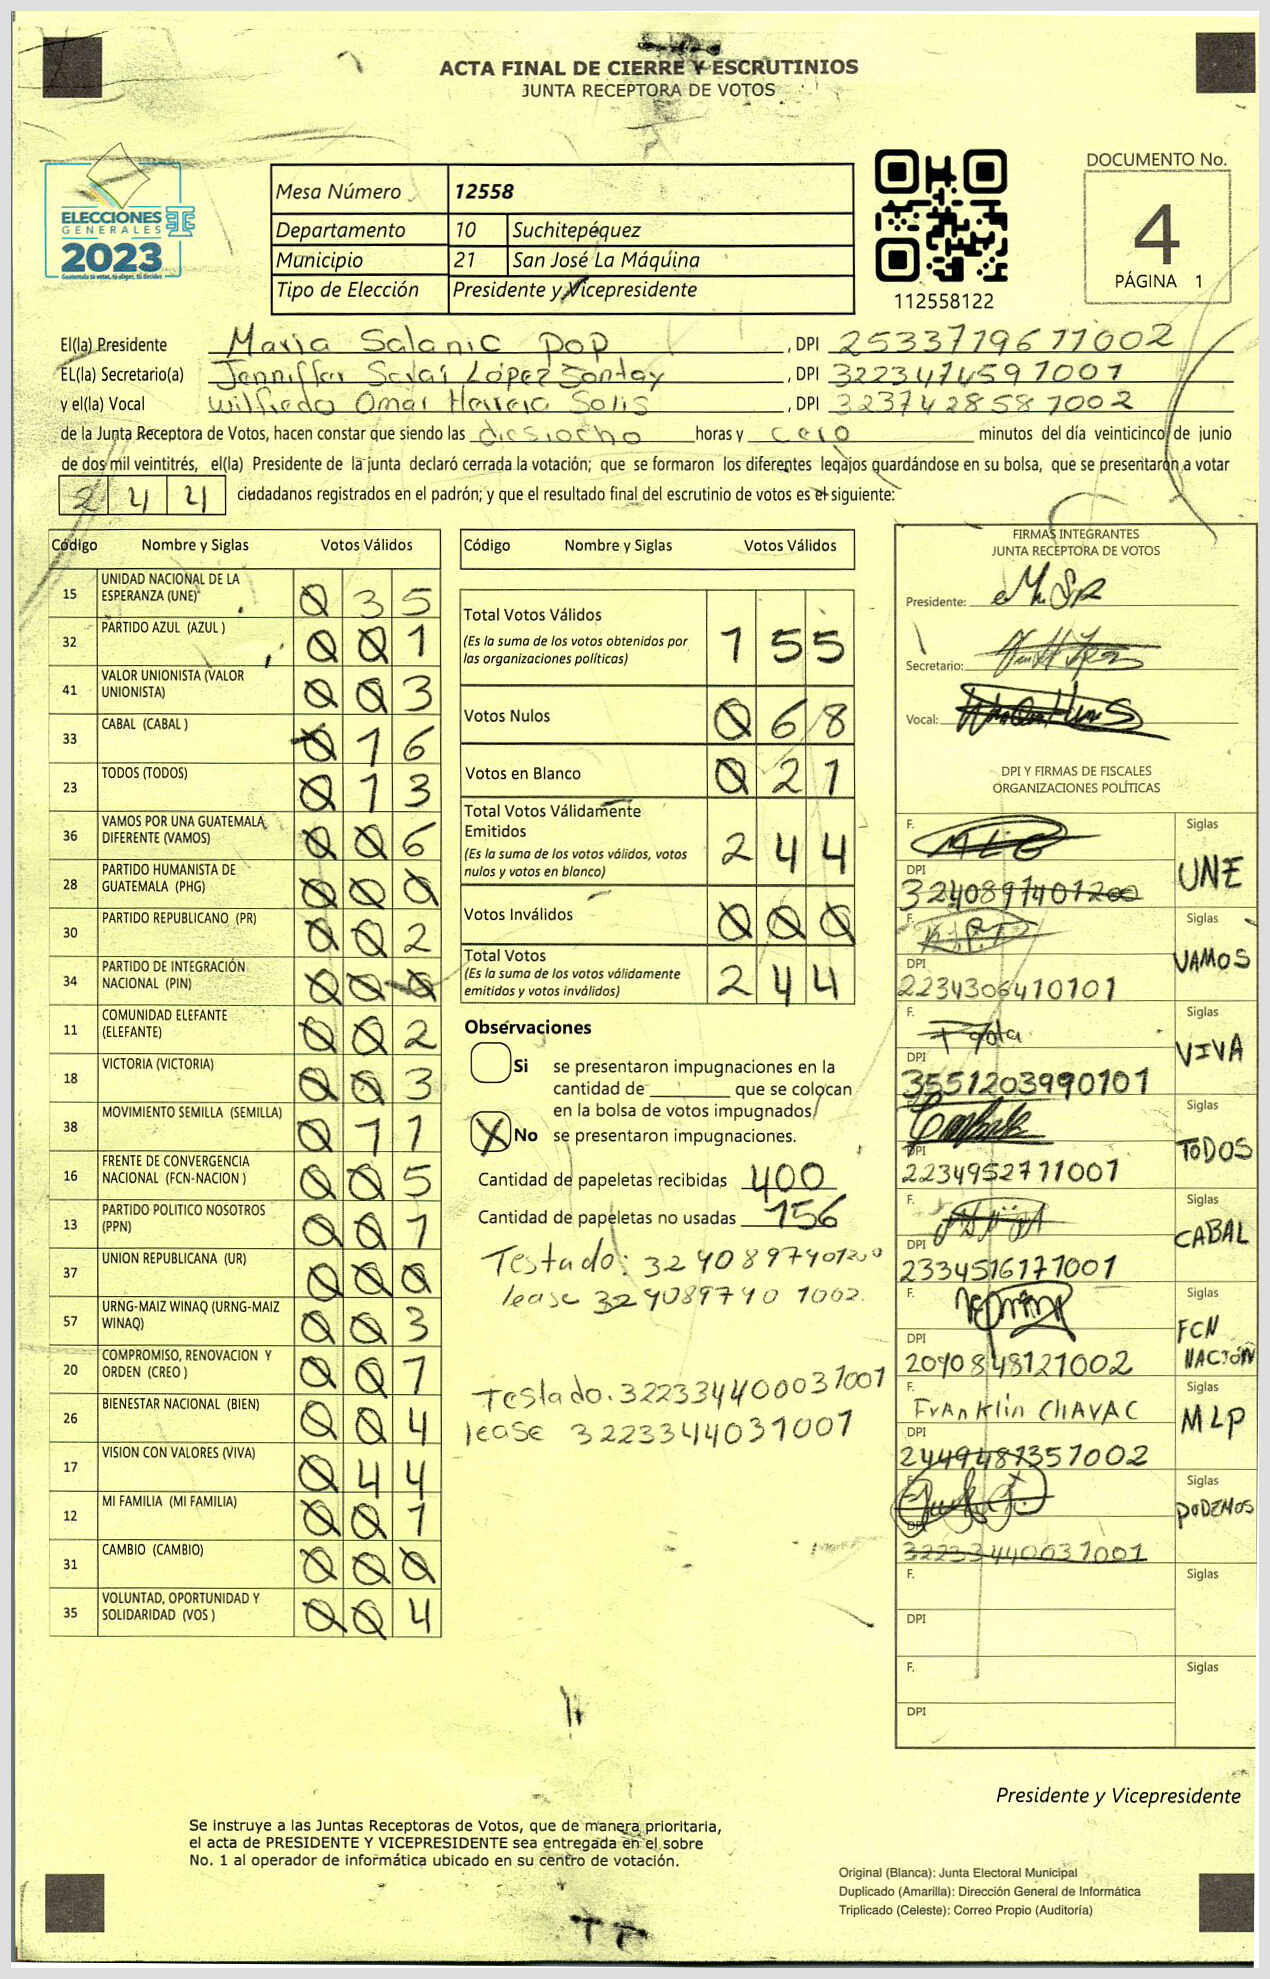 ACTA FINAL DE CIERRE Y ESCRUTINIOS
JUNTA RECEPTORA DE VOTOS
ELECCIONES
GENERALES
2023
Guatemala tú votas, tú eliges, tú decides
Mesa Número 12558
Departamento 10 Suchitepéquez
Municipio 21 San José La Máquina
Tipo de Elección Presidente y Vicepresidente
112558122
DOCUMENTO No.
4
PÁGINA 1
El(la) Presidente Maria Salanic Pop, DPI 2533719671002
EL(la) Secretario(a) Jenniffer Saraí López Santay, DPI 3223474597001
y el(la) Vocal Wilfredo Omar Herrera Solis, DPI 3237428587002
de la Junta Receptora de Votos, hacen constar que siendo las diesiocho horas y cero minutos del día veinticinco de junio
de dos mil veintitrés, el(la) Presidente de la junta declaró cerrada la votación; que se formaron los diferentes legajos guardándose en su bolsa, que se presentaron a votar
244 ciudadanos registrados en el padrón; y que el resultado final del escrutinio de votos es el siguiente:
Código Nombre y Siglas Votos Válidos
15 UNIDAD NACIONAL DE LA ESPERANZA (UNE) 0 3 5
32 PARTIDO AZUL (AZUL ) 0 0 1
41 VALOR UNIONISTA (VALOR UNIONISTA) 0 0 3
33 CABAL (CABAL ) 0 1 6
23 TODOS (TODOS) 0 1 3
36 VAMOS POR UNA GUATEMALA DIFERENTE (VAMOS) 0 0 6
28 PARTIDO HUMANISTA DE GUATEMALA (PHG) 0 0 0
30 PARTIDO REPUBLICANO (PR) 0 0 2
34 PARTIDO DE INTEGRACIÓN NACIONAL (PIN) 0 0 0
11 COMUNIDAD ELEFANTE (ELEFANTE) 0 0 2
18 VICTORIA (VICTORIA) 0 0 3
38 MOVIMIENTO SEMILLA (SEMILLA) 0 1 1
16 FRENTE DE CONVERGENCIA NACIONAL (FCN-NACION ) 0 0 5
13 PARTIDO POLITICO NOSOTROS (PPN) 0 0 1
37 UNION REPUBLICANA (UR) 0 0 0
57 URNG-MAIZ WINAQ (URNG-MAIZ WINAQ) 0 0 3
20 COMPROMISO, RENOVACION Y ORDEN (CREO ) 0 0 1
26 BIENESTAR NACIONAL (BIEN) 0 0 4
17 VISION CON VALORES (VIVA) 0 4 4
12 MI FAMILIA (MI FAMILIA) 0 0 1
31 CAMBIO (CAMBIO) 0 0 0
35 VOLUNTAD, OPORTUNIDAD Y SOLIDARIDAD (VOS ) 0 0 4
Código Nombre y Siglas Votos Válidos
Total Votos Válidos 1 5 5
(Es la suma de los votos obtenidos por
las organizaciones políticas)
Votos Nulos 0 6 8
Votos en Blanco 0 2 1
Total Votos Válidamente
Emitidos 2 4 4
(Es la suma de los votos válidos, votos
nulos y votos en blanco)
Votos Inválidos 0 0 0
Total Votos 2 4 4
(Es la suma de los votos válidamente
emitidos y votos inválidos)
Observaciones
Si se presentaron impugnaciones en la
cantidad de ________ que se colocan
en la bolsa de votos impugnados
X No se presentaron impugnaciones.
Cantidad de papeletas recibidas 400
Cantidad de papeletas no usadas 156
Testado: 3240897401200
lease 3240897401002.
Testado. 322334400031001
lease 3223344031001
FIRMAS INTEGRANTES
JUNTA RECEPTORA DE VOTOS
Presidente:
Secretario:
Vocal:
DPI Y FIRMAS DE FISCALES
ORGANIZACIONES POLÍTICAS
F. Siglas
UNE
DPI
3240897401200
F. Siglas
VAMOS
DPI
2234306410101
F. Siglas
VIVA
DPI
3551203990101
F. Siglas
TODOS
DPI
2234952711001
F. Siglas
CABAL
DPI
2334516171001
F. Siglas
FCN
NACIÓN
DPI
2090848121002
F. Franklin CHAVAC Siglas
MLP
DPI
2449487357002
F. Siglas
PODEMOS
DPI
32233440031001
F. Siglas
DPI
F. Siglas
DPI
Presidente y Vicepresidente
Se instruye a las Juntas Receptoras de Votos, que de manera prioritaria,
el acta de PRESIDENTE Y VICEPRESIDENTE sea entregada en el sobre
No. 1 al operador de informática ubicado en su centro de votación.
Original (Blanca): Junta Electoral Municipal
Duplicado (Amarilla): Dirección General de Informática
Triplicado (Celeste): Correo Propio (Auditoría)